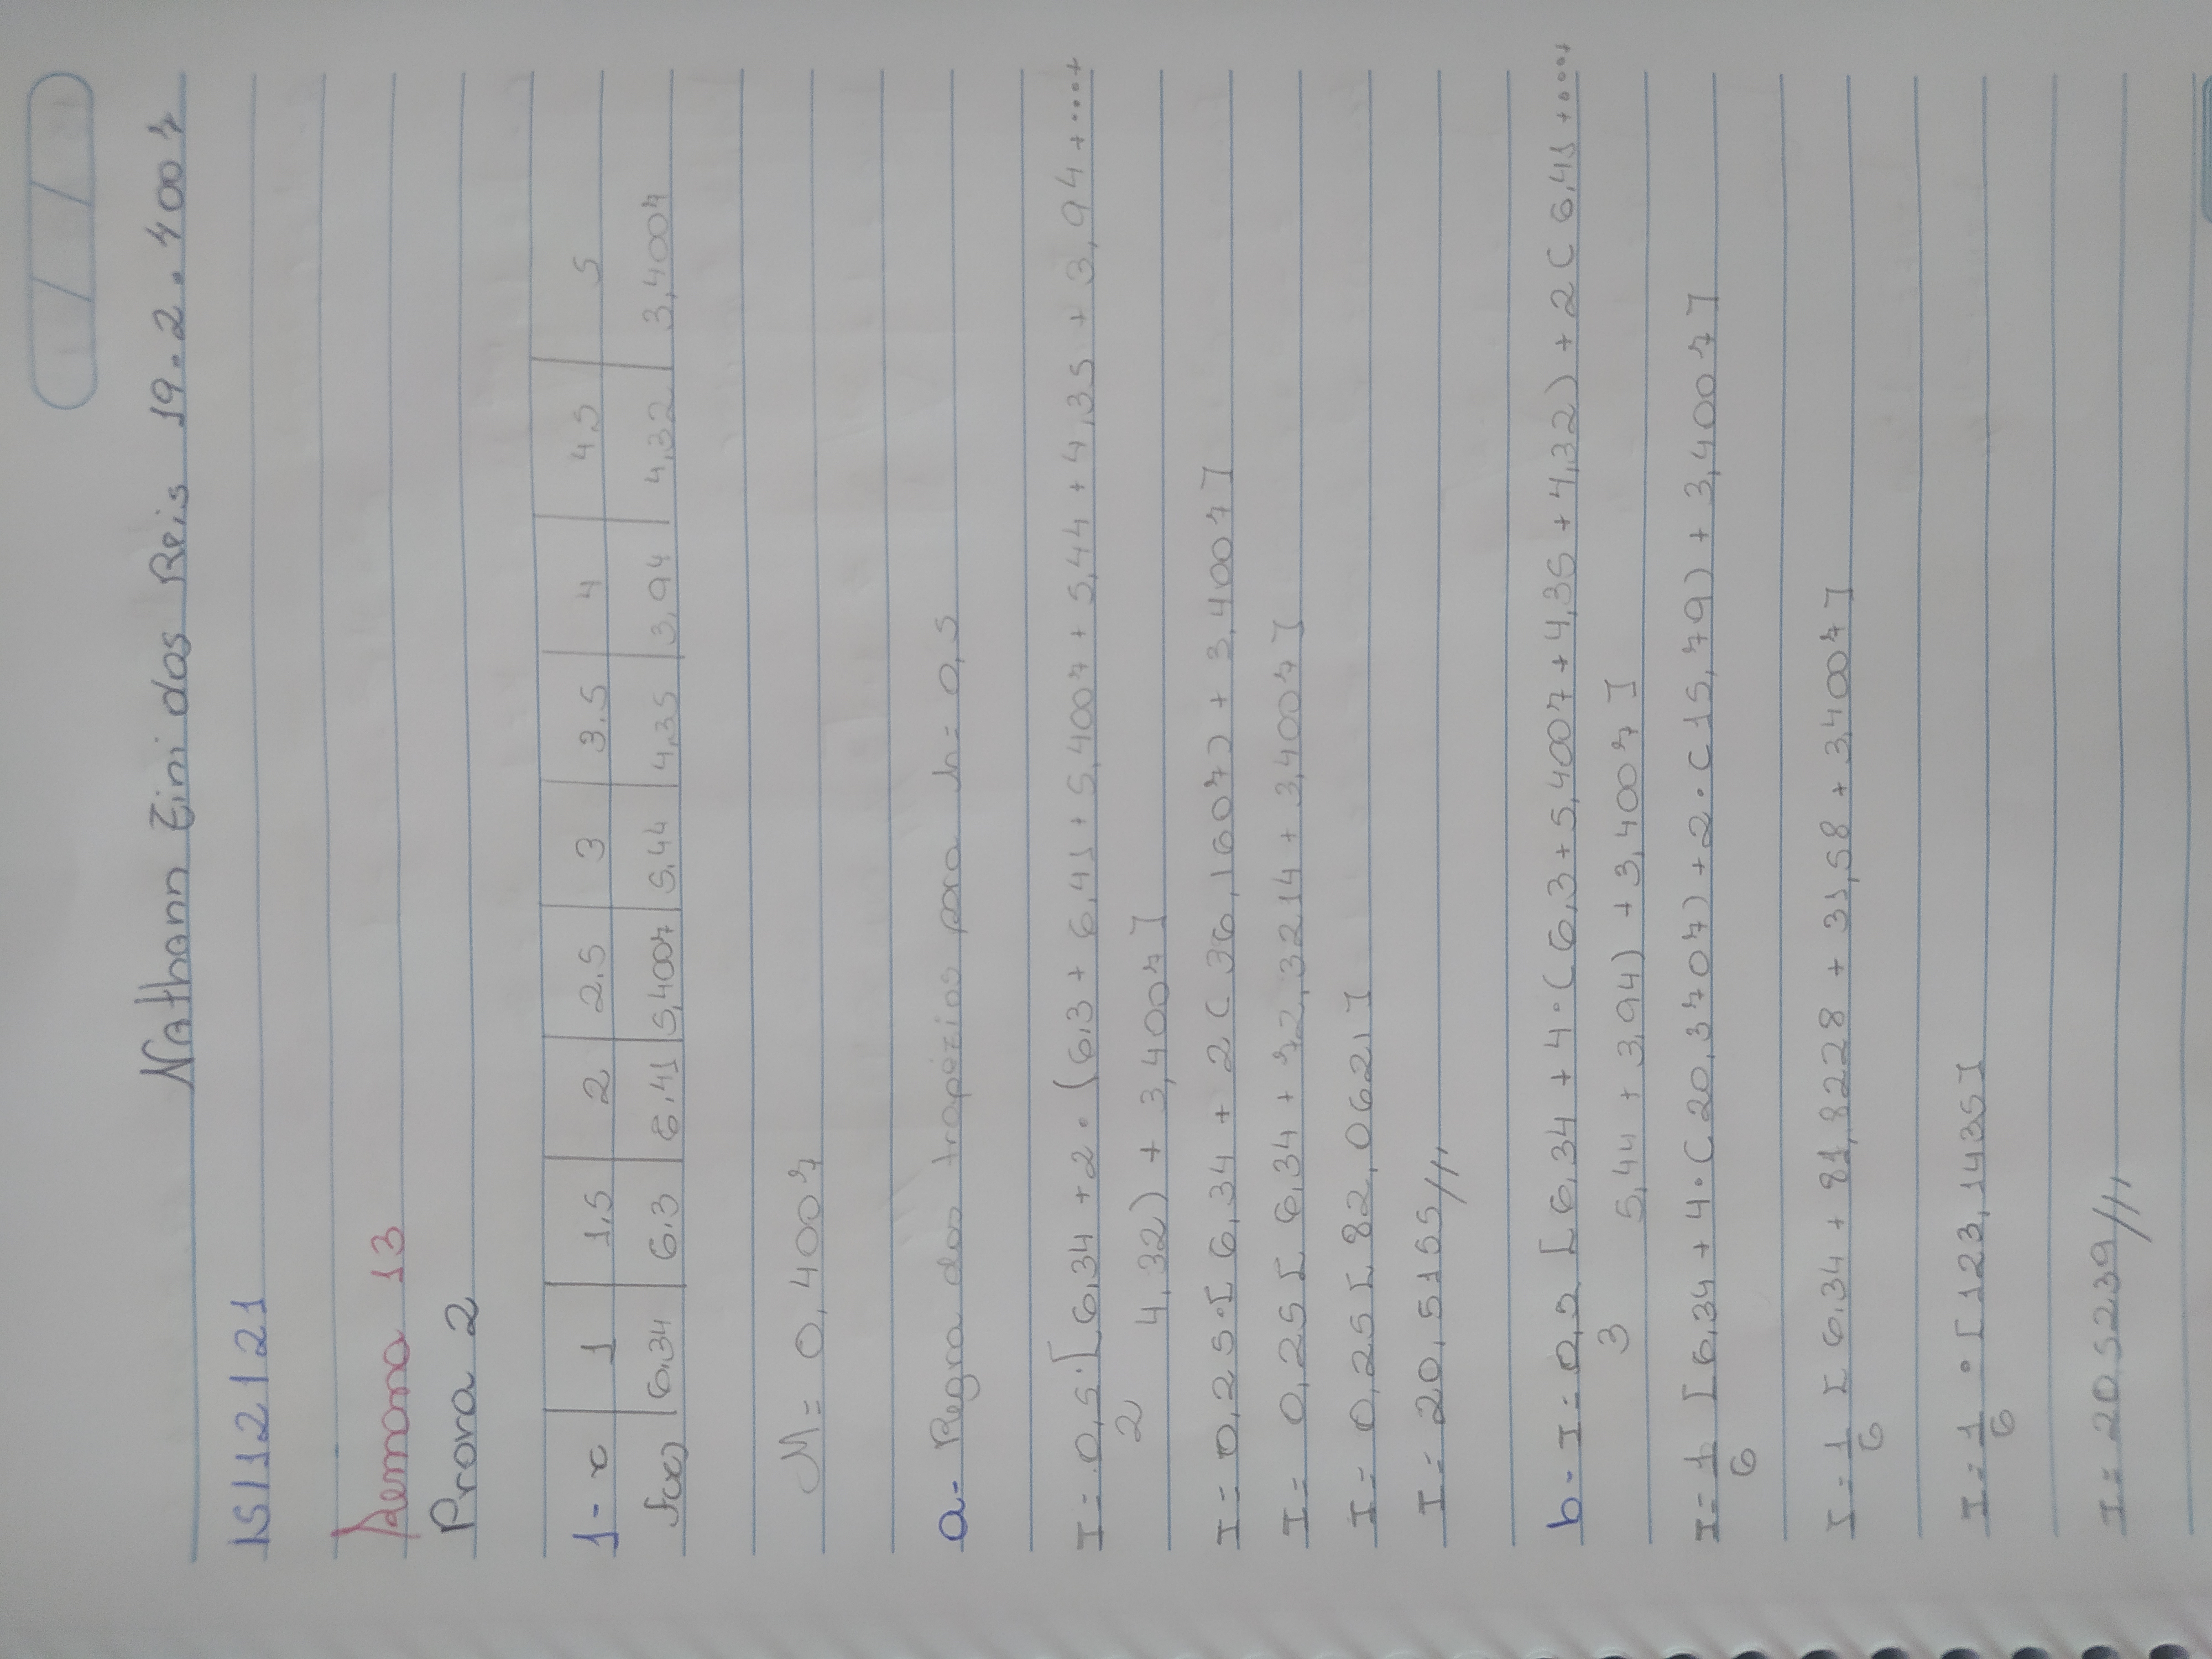 Nathann Zini dos Reis 19.2.4007
15/12/21
Semana 13
Prova 2
1- x 1 1.5 2 2.5 3 3.5 4 4.5 5
f(x) 6.34 6.3 6.41 5,4007 5,44 4,35 3,94 4,32 3,4007
M= 0,4007
a- Regra dos trapézios para h= 0,5
I= 0,5/2 . [6,34 + 2 . (6,3 + 6,41 + 5,4007 + 5,44 + 4,35 + 3,94 + ... +
4,32) + 3,4007]
I= 0,25 . [6,34 + 2(36,1607) + 3,4007]
I= 0,25 [6,34 + 72,3214 + 3,4007]
I= 0,25 [82,0621]
I= 20,5155//,,
b- I= 0,5/3 [6,34 + 4 . (6,3 + 5,4007 + 4,35 + 4,32) + 2(6,41 + ....
5,44 + 3,94) + 3,4007]
I= 1/6 [6,34 + 4 . (20,3707) + 2 . (15,79) + 3,4007]
I= 1/6 [6,34 + 81,8228 + 31,58 + 3,4007]
I= 1/6 . [123,1435]
I= 20,5239//,,